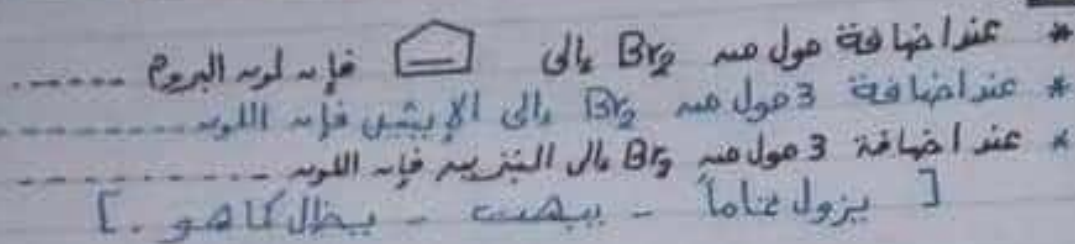 * عند اضافة مول من Br2 إلى فإن لون البروم ......
* عند اضافة 3 مول من Br2 إلى الإيثين فإن اللون ..........
* عند اضافة 3 مول من Br2 إلى البنزين فإن اللون ..........
[ يزول تماماً - يبهت - يظل كما هو . ]